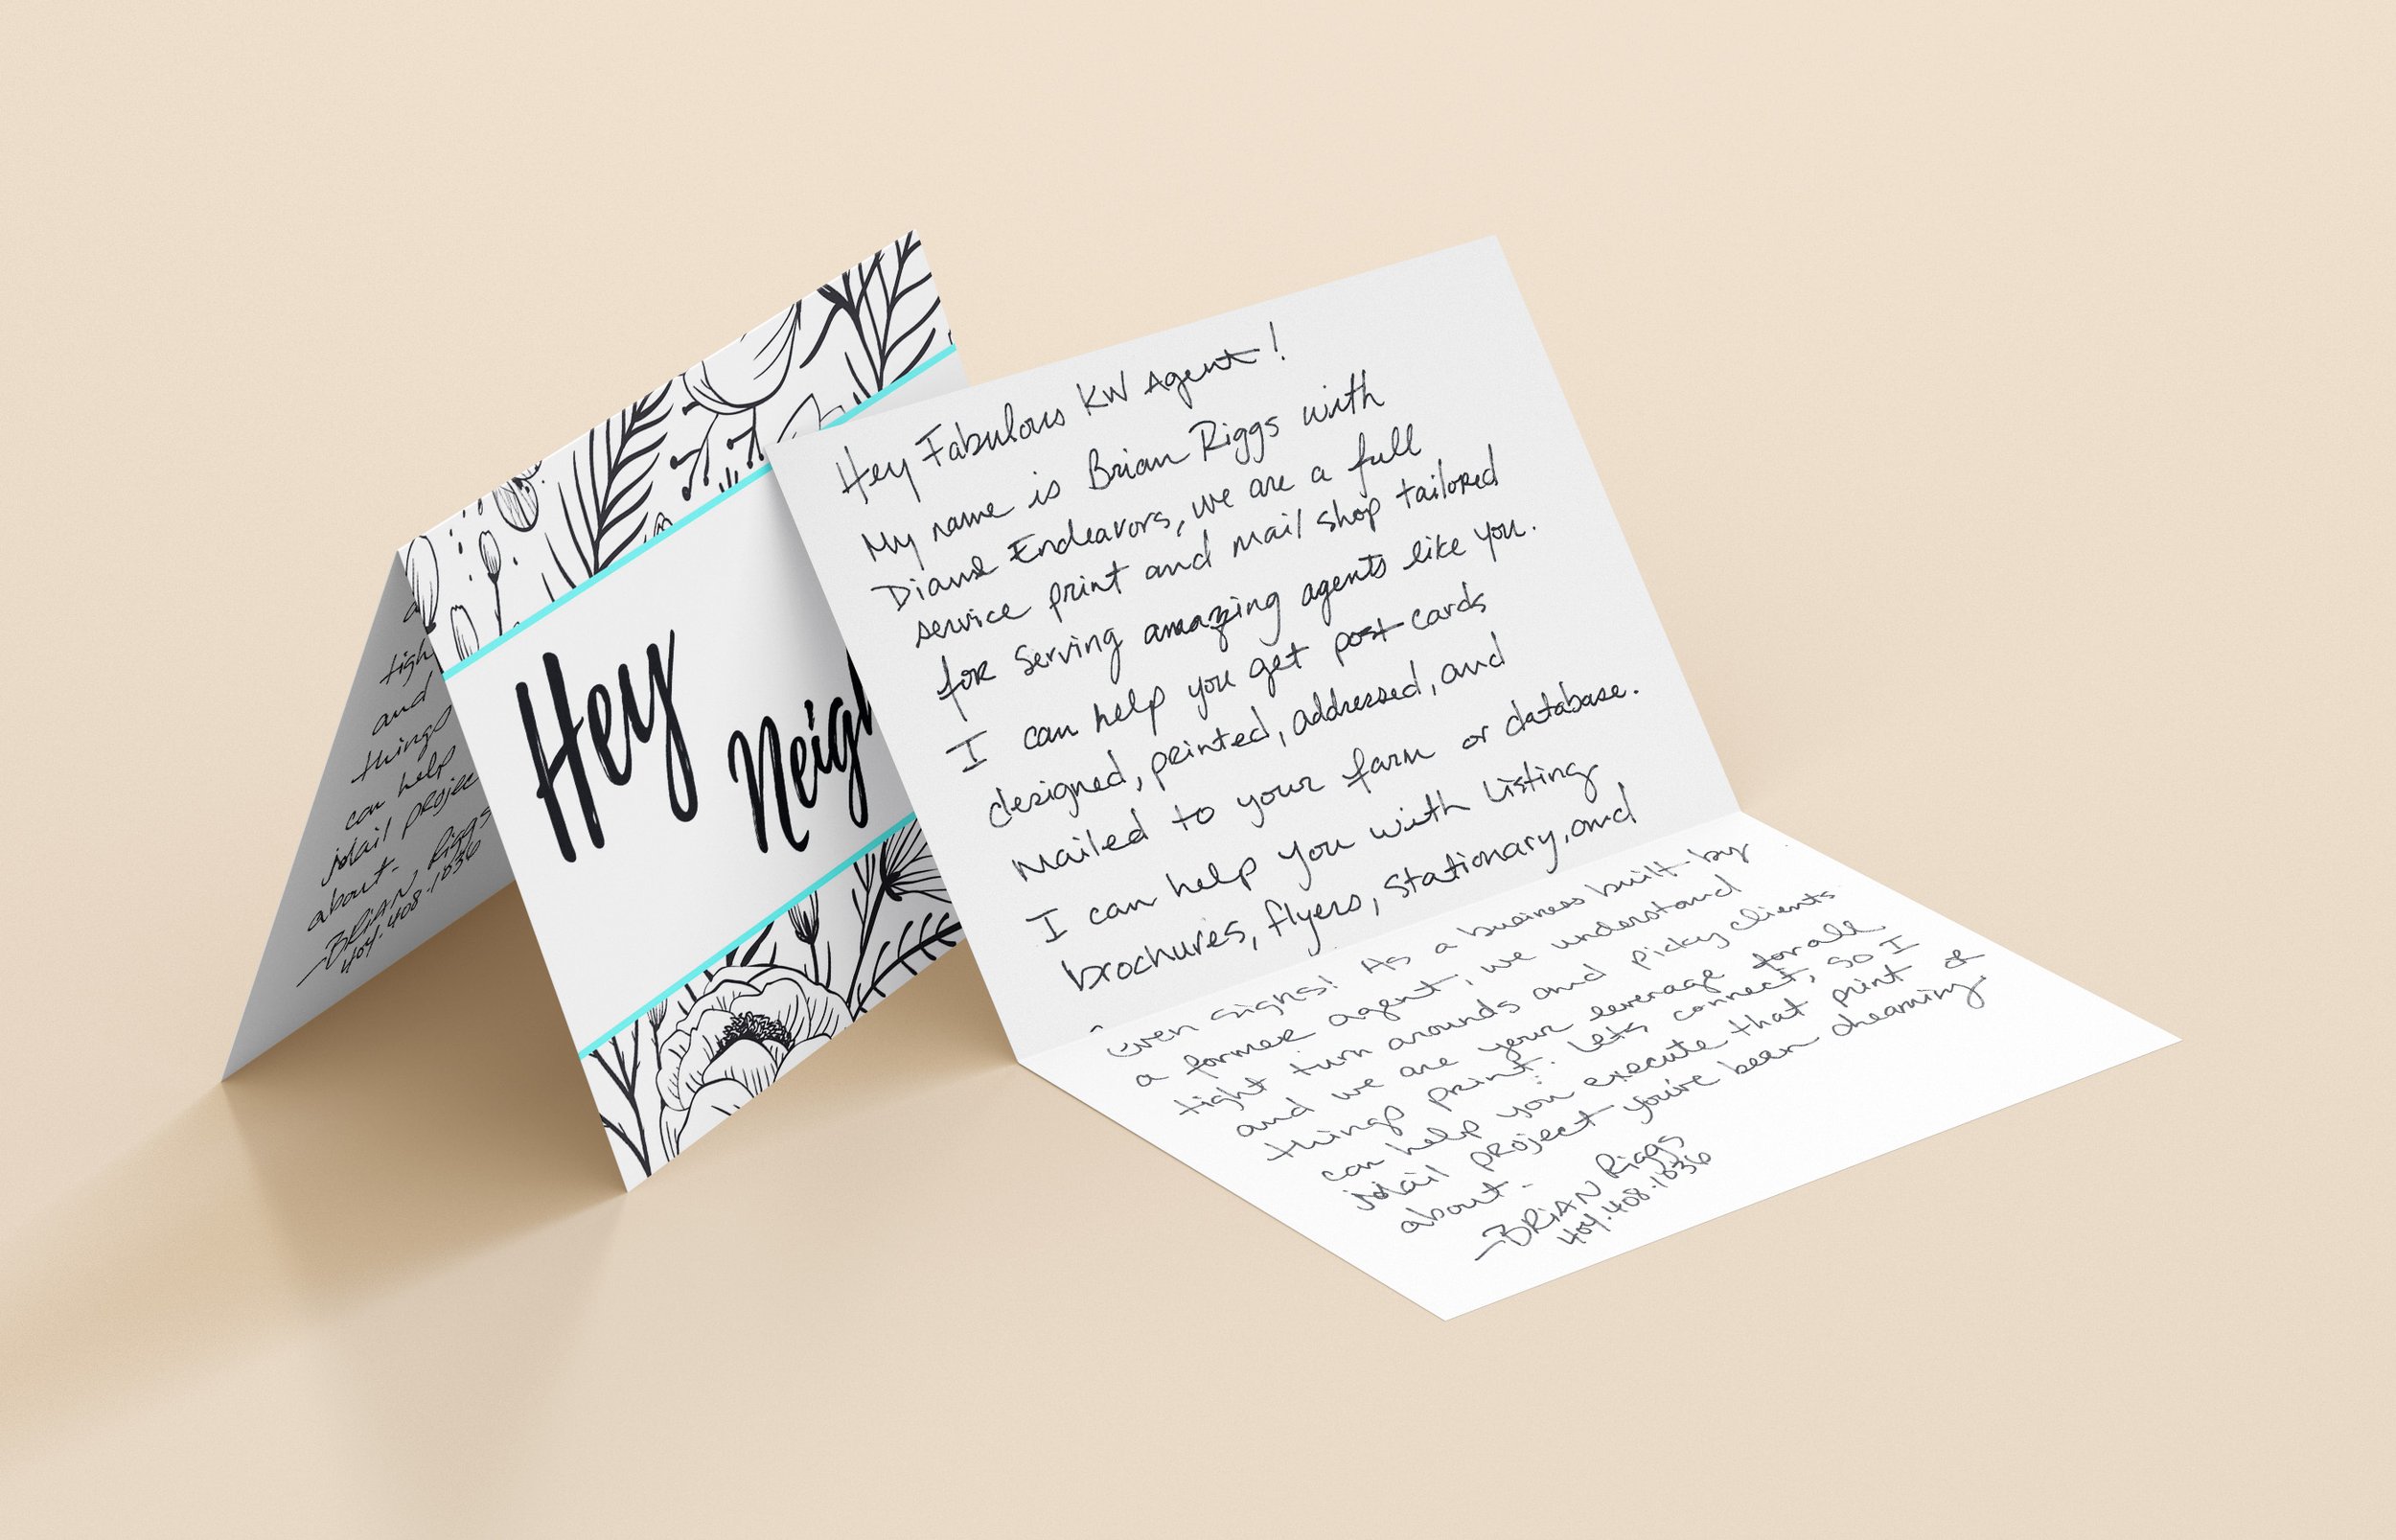 a
tigh
and
things
can help
Mail projec
about.
-BRIAN Riggs
404.408.1836
Hey
Neigh
Hey Fabulous KW Agent!
My name is Brian Riggs with
Diand Endeavors, we are a full
service print and mail shop tailored
for serving amazing agents like you.
I can help you get post cards
designed, printed, addressed, and
mailed to your farm or database.
I can help you with listing
brochures, flyers, stationary, and
even signs! As a business built by
a former agent, we understand
tight turn arounds and picky clients
and we are your leverage for all
things print. Lets connect, so I
can help you execute that print or
Mail project you've been dreaming
about.
-BRIAN Riggs
404.408.1836